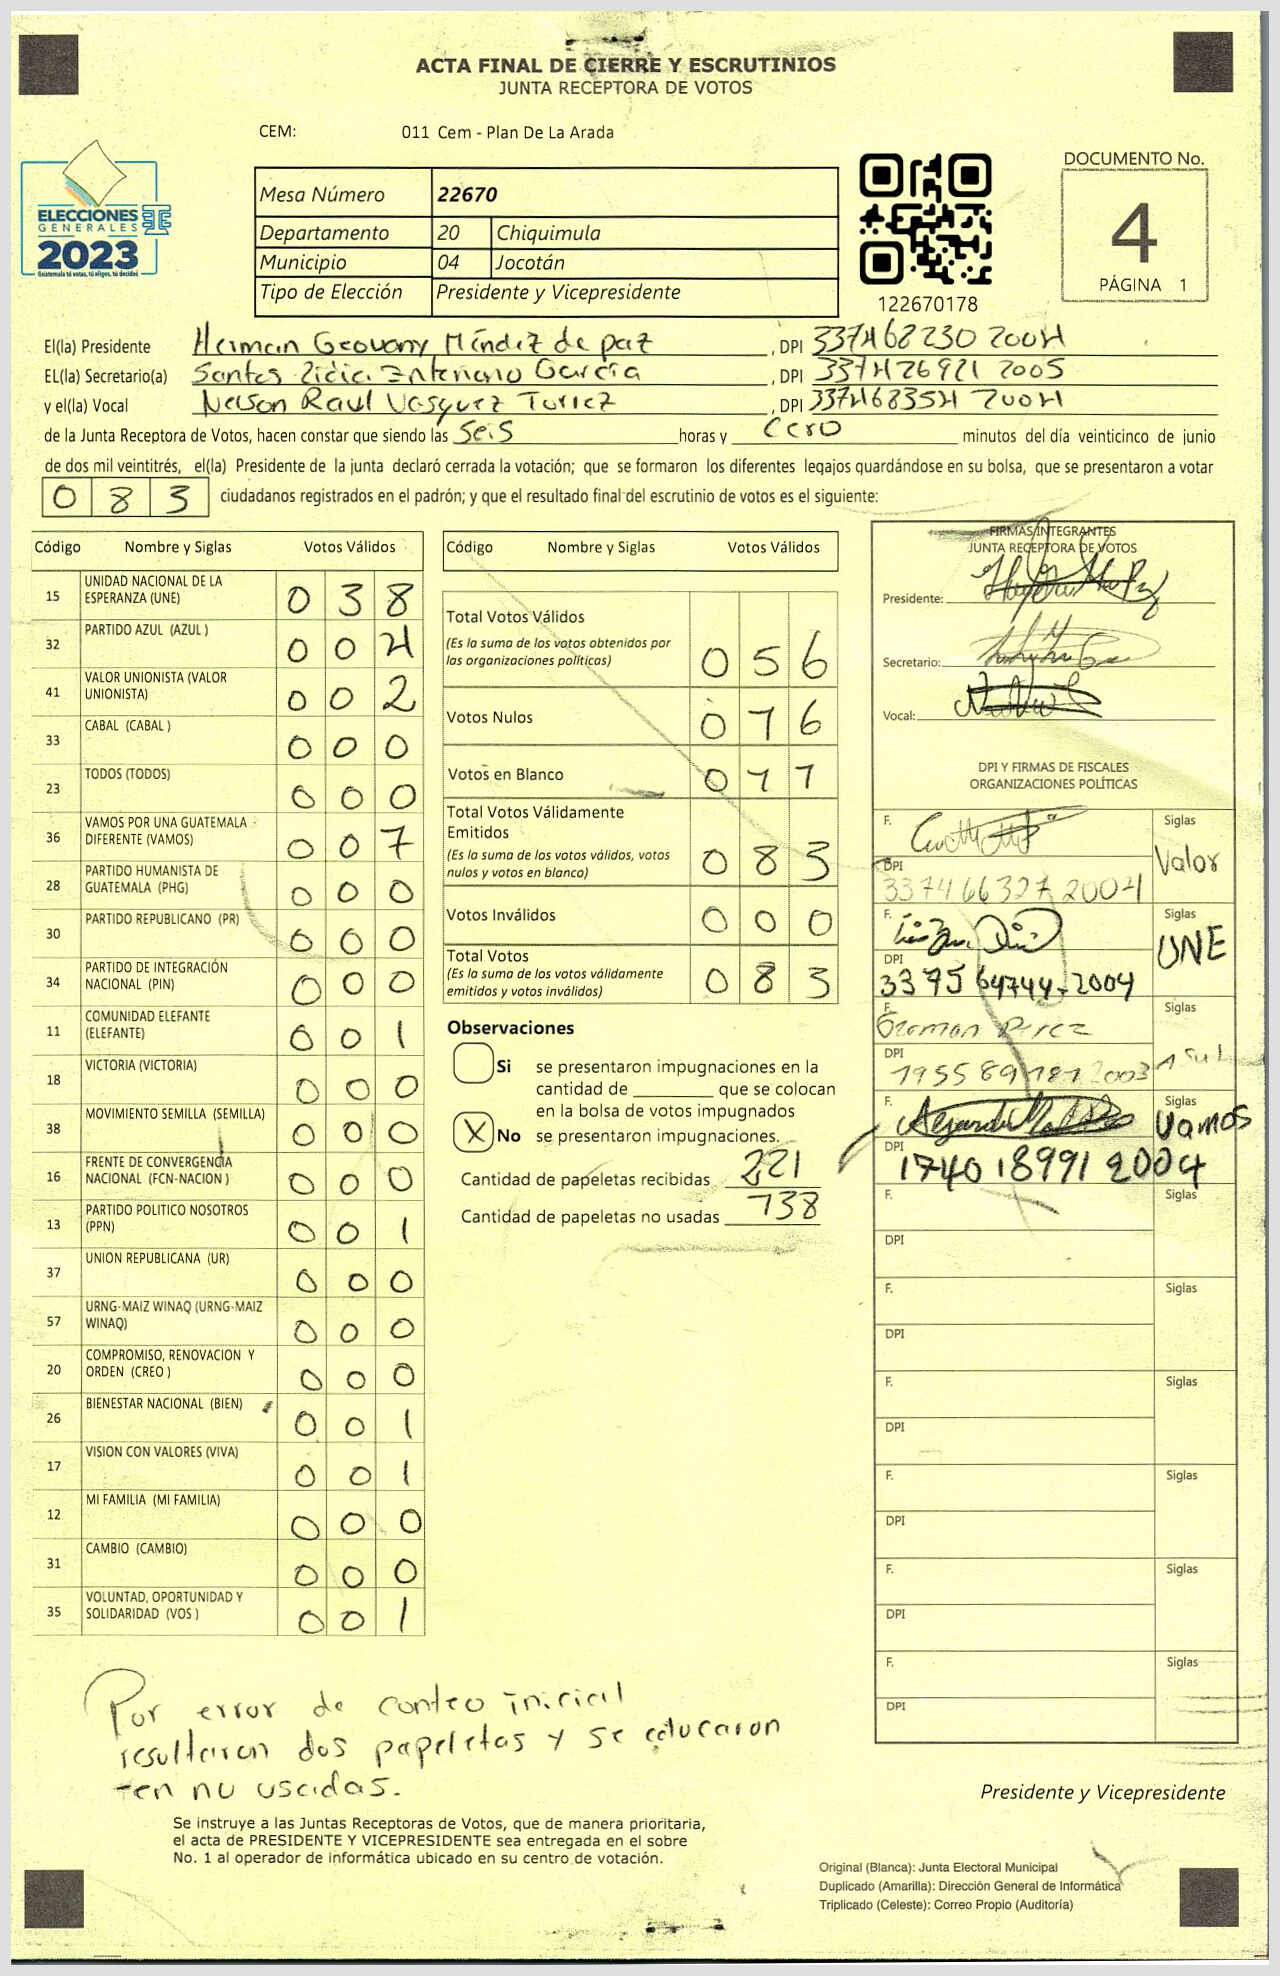 ACTA FINAL DE CIERRE Y ESCRUTINIOS
JUNTA RECEPTORA DE VOTOS
CEM: 011 Cem - Plan De La Arada
ELECCIONES
GENERALES
2023
Guatemala tú votas, tú eliges, tú decides
Mesa Número 22670
Departamento 20 Chiquimula
Municipio 04 Jocotán
Tipo de Elección Presidente y Vicepresidente
122670178
DOCUMENTO No.
4
PÁGINA 1
El(la) Presidente Herman Geovany Méndez de paz , DPI 337468230 2004
EL(la) Secretario(a) Santos Garcia , DPI 337426921 2005
y el(la) Vocal Nelson Raul Vasquez Torrez , DPI 337468354 2004
de la Junta Receptora de Votos, hacen constar que siendo las Seis horas y Cero minutos del día veinticinco de junio
de dos mil veintitrés, el(la) Presidente de la junta declaró cerrada la votación; que se formaron los diferentes legajos quardándose en su bolsa, que se presentaron a votar
083 ciudadanos registrados en el padrón; y que el resultado final del escrutinio de votos es el siguiente:
Código Nombre y Siglas Votos Válidos
15 UNIDAD NACIONAL DE LA ESPERANZA (UNE) 038
32 PARTIDO AZUL (AZUL ) 004
41 VALOR UNIONISTA (VALOR UNIONISTA) 002
33 CABAL (CABAL ) 000
23 TODOS (TODOS) 000
36 VAMOS POR UNA GUATEMALA DIFERENTE (VAMOS) 007
28 PARTIDO HUMANISTA DE GUATEMALA (PHG) 000
30 PARTIDO REPUBLICANO (PR) 000
34 PARTIDO DE INTEGRACIÓN NACIONAL (PIN) 000
11 COMUNIDAD ELEFANTE (ELEFANTE) 001
18 VICTORIA (VICTORIA) 000
38 MOVIMIENTO SEMILLA (SEMILLA) 000
16 FRENTE DE CONVERGENCIA NACIONAL (FCN-NACION ) 000
13 PARTIDO POLITICO NOSOTROS (PPN) 001
37 UNION REPUBLICANA (UR) 000
57 URNG-MAIZ WINAQ (URNG-MAIZ WINAQ) 000
20 COMPROMISO, RENOVACION Y ORDEN (CREO ) 000
26 BIENESTAR NACIONAL (BIEN) 001
17 VISION CON VALORES (VIVA) 001
12 MI FAMILIA (MI FAMILIA) 000
31 CAMBIO (CAMBIO) 000
35 VOLUNTAD, OPORTUNIDAD Y SOLIDARIDAD (VOS ) 001
Código Nombre y Siglas Votos Válidos
Total Votos Válidos
(Es la suma de los votos obtenidos por
las organizaciones políticas) 056
Votos Nulos 016
Votos en Blanco 011
Total Votos Válidamente
Emitidos
(Es la suma de los votos válidos, votos
nulos y votos en blanco) 083
Votos Inválidos 000
Total Votos
(Es la suma de los votos válidamente
emitidos y votos inválidos) 083
Observaciones
Si se presentaron impugnaciones en la
cantidad de ________ que se colocan
en la bolsa de votos impugnados
X No se presentaron impugnaciones.
Cantidad de papeletas recibidas 221
Cantidad de papeletas no usadas 138
FIRMAS INTEGRANTES
JUNTA RECEPTORA DE VOTOS
Presidente:
Secretario:
Vocal:
DPI Y FIRMAS DE FISCALES
ORGANIZACIONES POLÍTICAS
F. Siglas
Valor
DPI
337466327 2004
F. Siglas
UNE
DPI
3375 64744-2004
F. Perez Siglas
DPI
1955 89 181 2003 Asul
F. Siglas
Vamos
DPI
1740 18991 2004
F. Siglas
DPI
F. Siglas
DPI
F. Siglas
DPI
F. Siglas
DPI
F. Siglas
DPI
F. Siglas
DPI
Por error de conteo inicial
resultaron dos papeletas y se colucaron
en nu usadas.
Presidente y Vicepresidente
Se instruye a las Juntas Receptoras de Votos, que de manera prioritaria,
el acta de PRESIDENTE Y VICEPRESIDENTE sea entregada en el sobre
No. 1 al operador de informática ubicado en su centro de votación.
Original (Blanca): Junta Electoral Municipal
Duplicado (Amarilla): Dirección General de Informática
Triplicado (Celeste): Correo Propio (Auditoría)